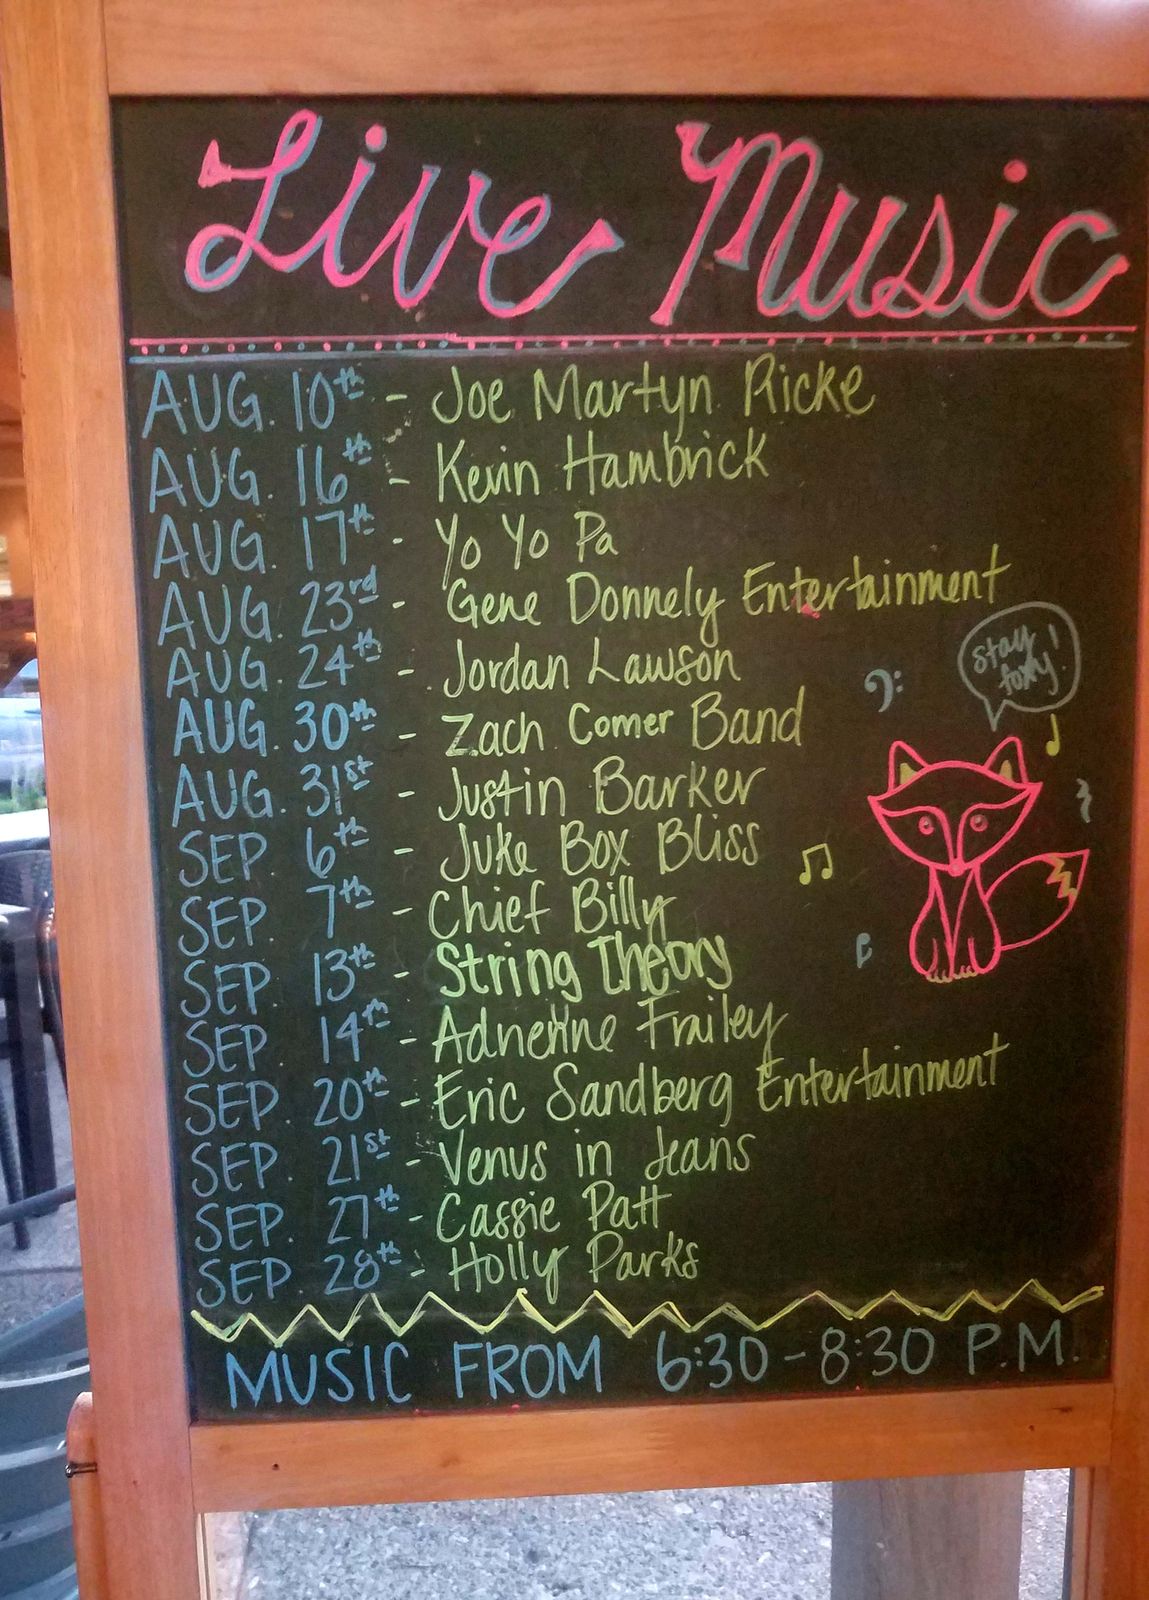 Live Music
AUG. 10th - Joe Martyn Ricke
AUG. 16th - Kevin Hambrick
AUG. 17th - Yo Yo Pa
AUG. 23rd - Gene Donnely Entertainment
AUG. 24th - Jordan Lawson
AUG. 30th - Zach Comer Band
AUG. 31st - Justin Barker
SEP. 6th - Juke Box Bliss
SEP. 7th - Chief Billy
SEP. 13th - String Theory
SEP. 14th - Adrienne Frailey
SEP. 20th - Eric Sandberg Entertainment
SEP. 21st - Venus in Jeans
SEP. 27th - Cassie Patt
SEP. 28th - Holly Parks
stay
foxy!
MUSIC FROM 6:30 - 8:30 P.M.